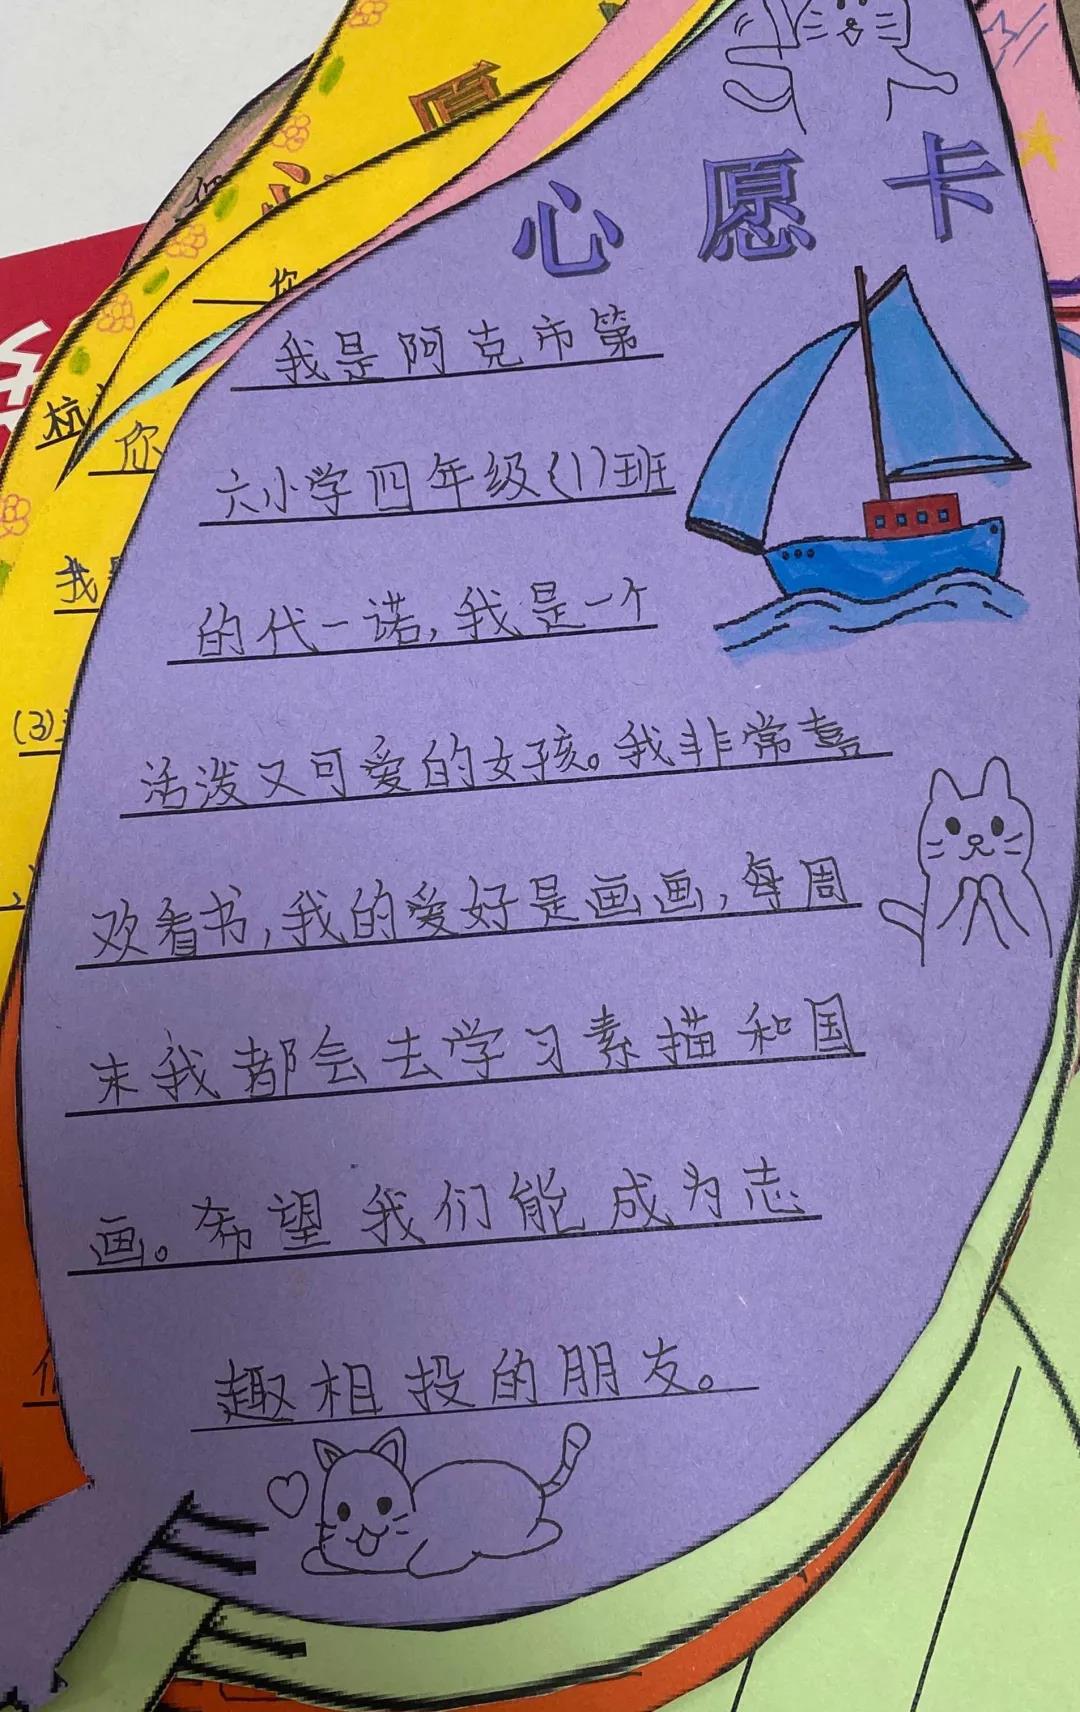 心愿卡
我是阿克市第
六小学四年级(1)班
的代一诺,我是一个
活泼又可爱的女孩。我非常喜
欢看书,我的爱好是画画,每周
末我都会去学习素描和国
画。希望我们能成为志
趣相投的朋友。
心
你
杭
你
我
(3)